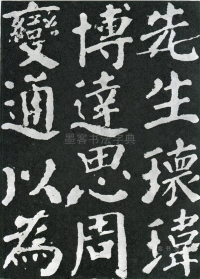 先生瓌瑋
博達思周
變通以為
墨客书法字典